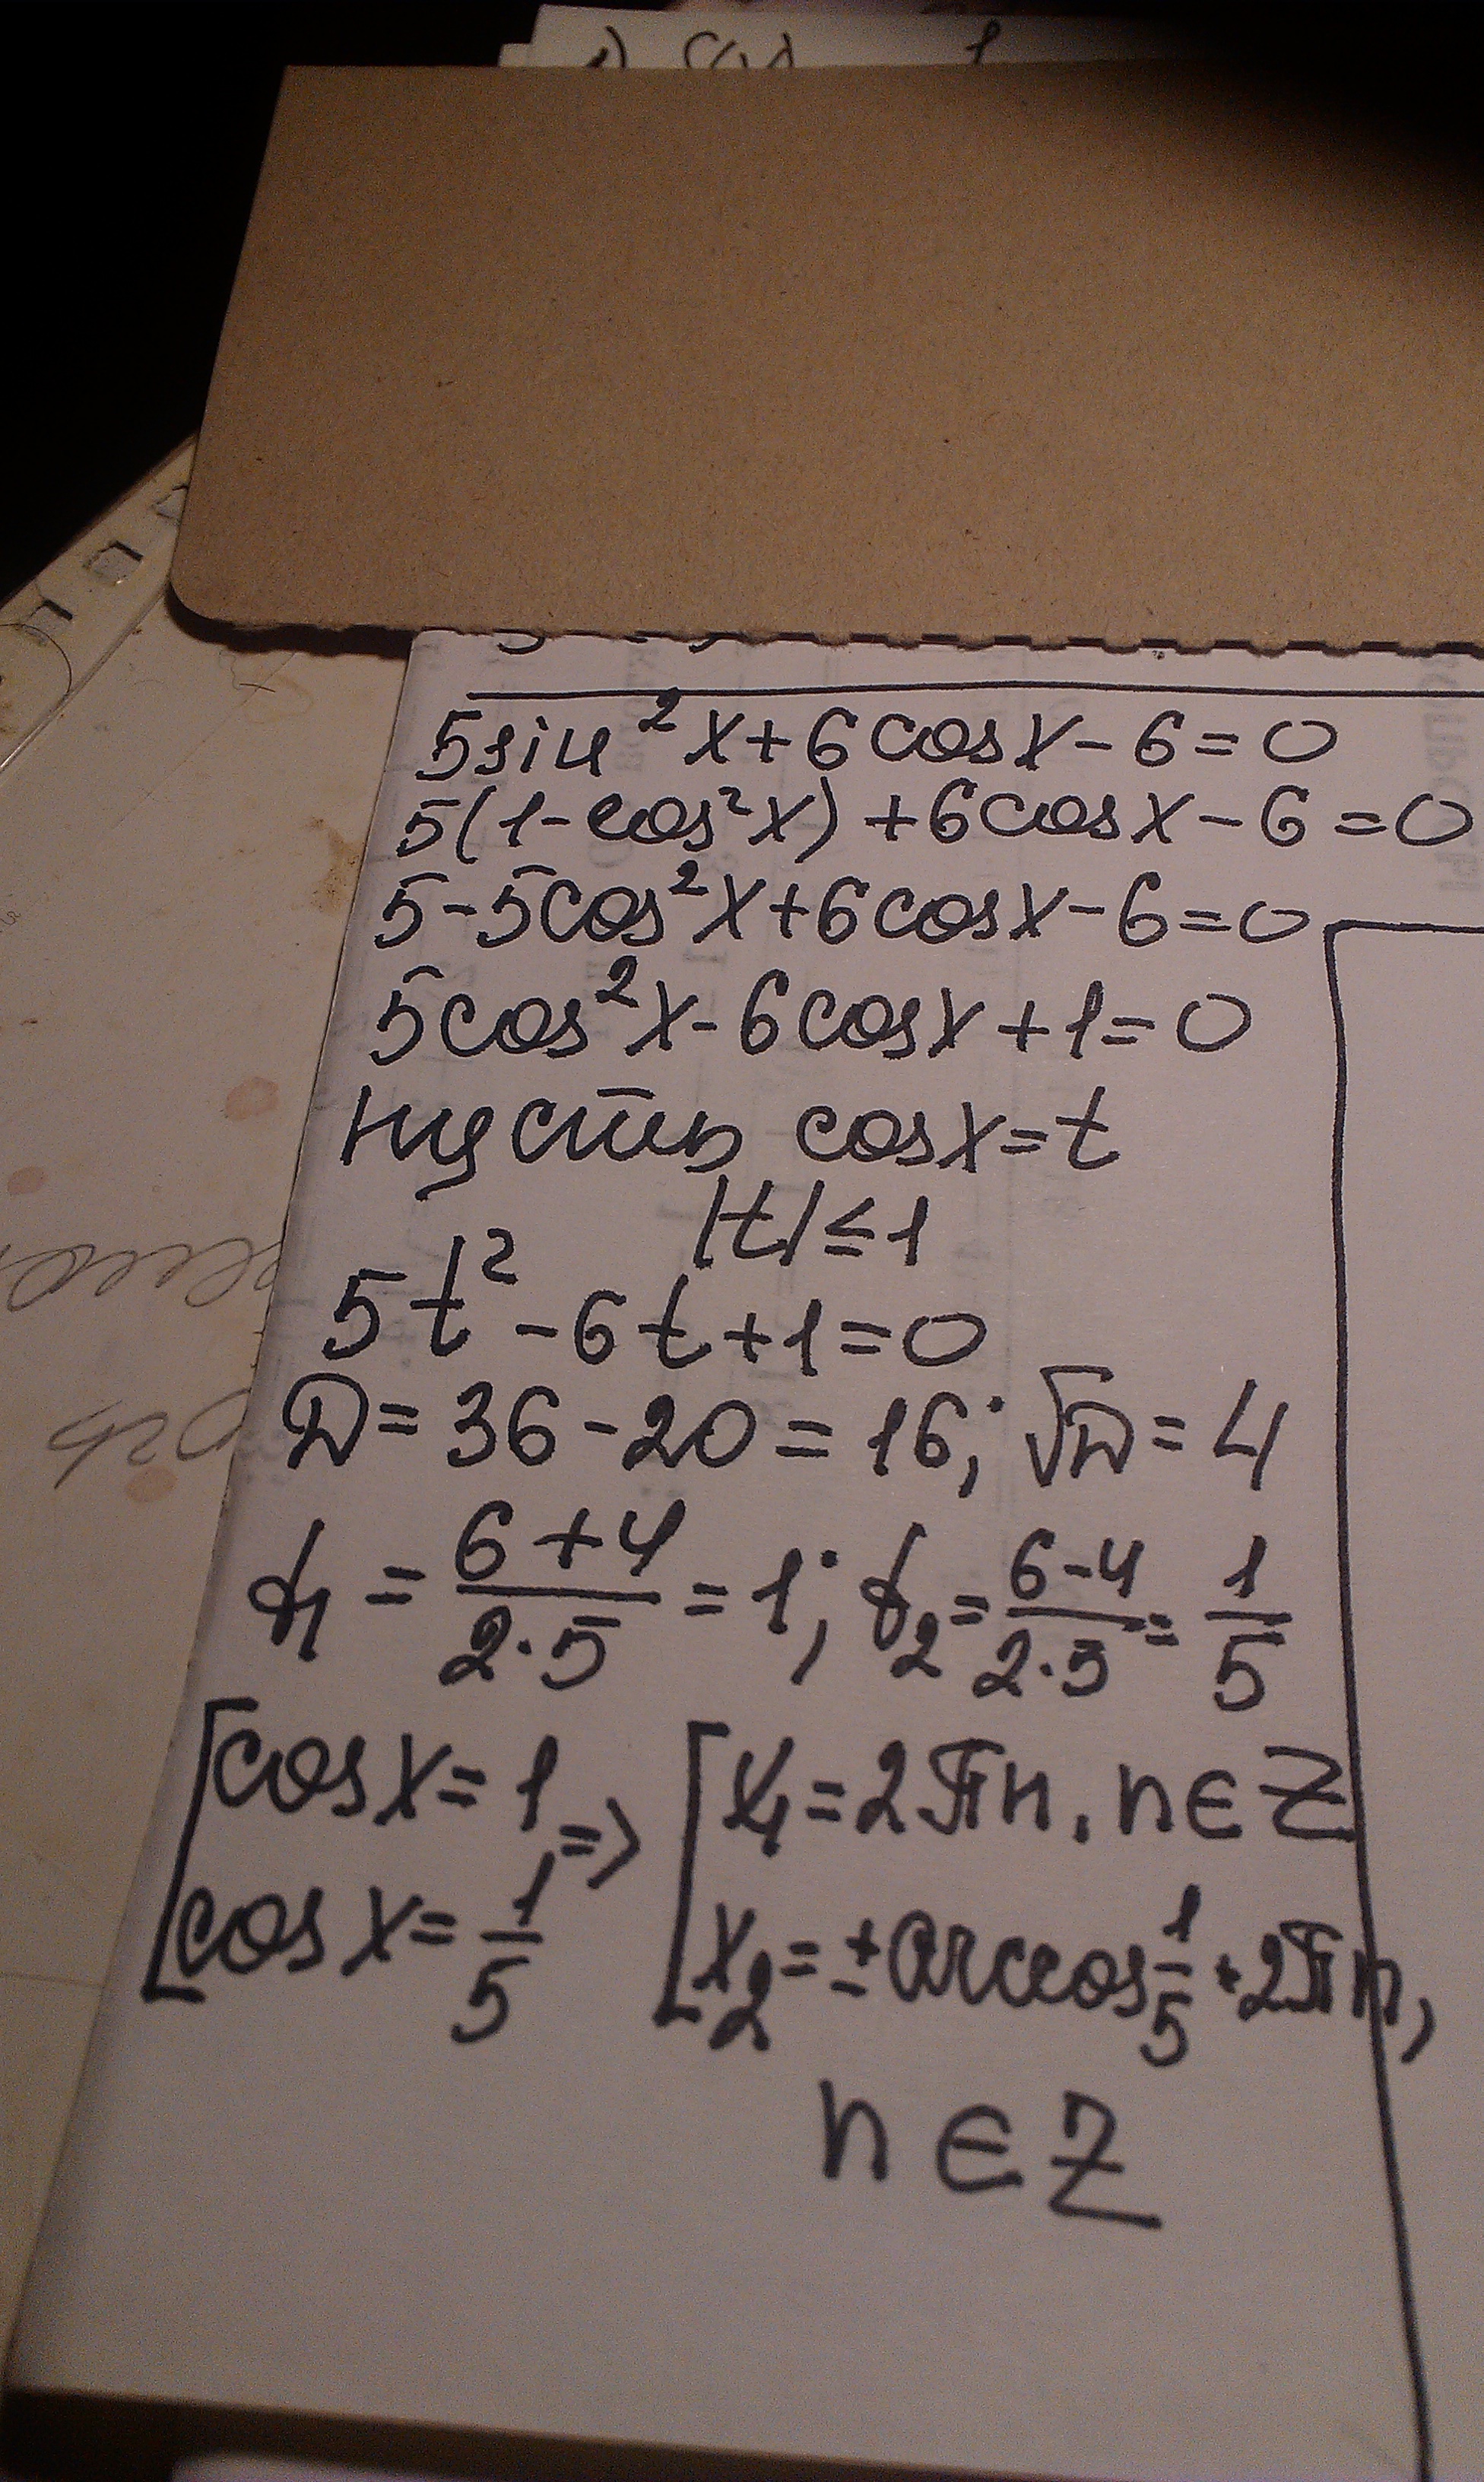 5sin²x+6cosx-6=0
5(1-cos²x)+6cosx-6=0
5-5cos²x+6cosx-6=0
5cos²x-6cosx+1=0
пусть cosx=t
|t|≤1
5t²-6t+1=0
D=36-20=16; √D=4
t₁=(6+4)/(2·5)=1; t₂=(6-4)/(2·5)=1/5
[cosx=1, => [x₁=2πn, n∈Z
[cosx=1/5 [x₂=±arccos1/5+2πn,
n∈Z